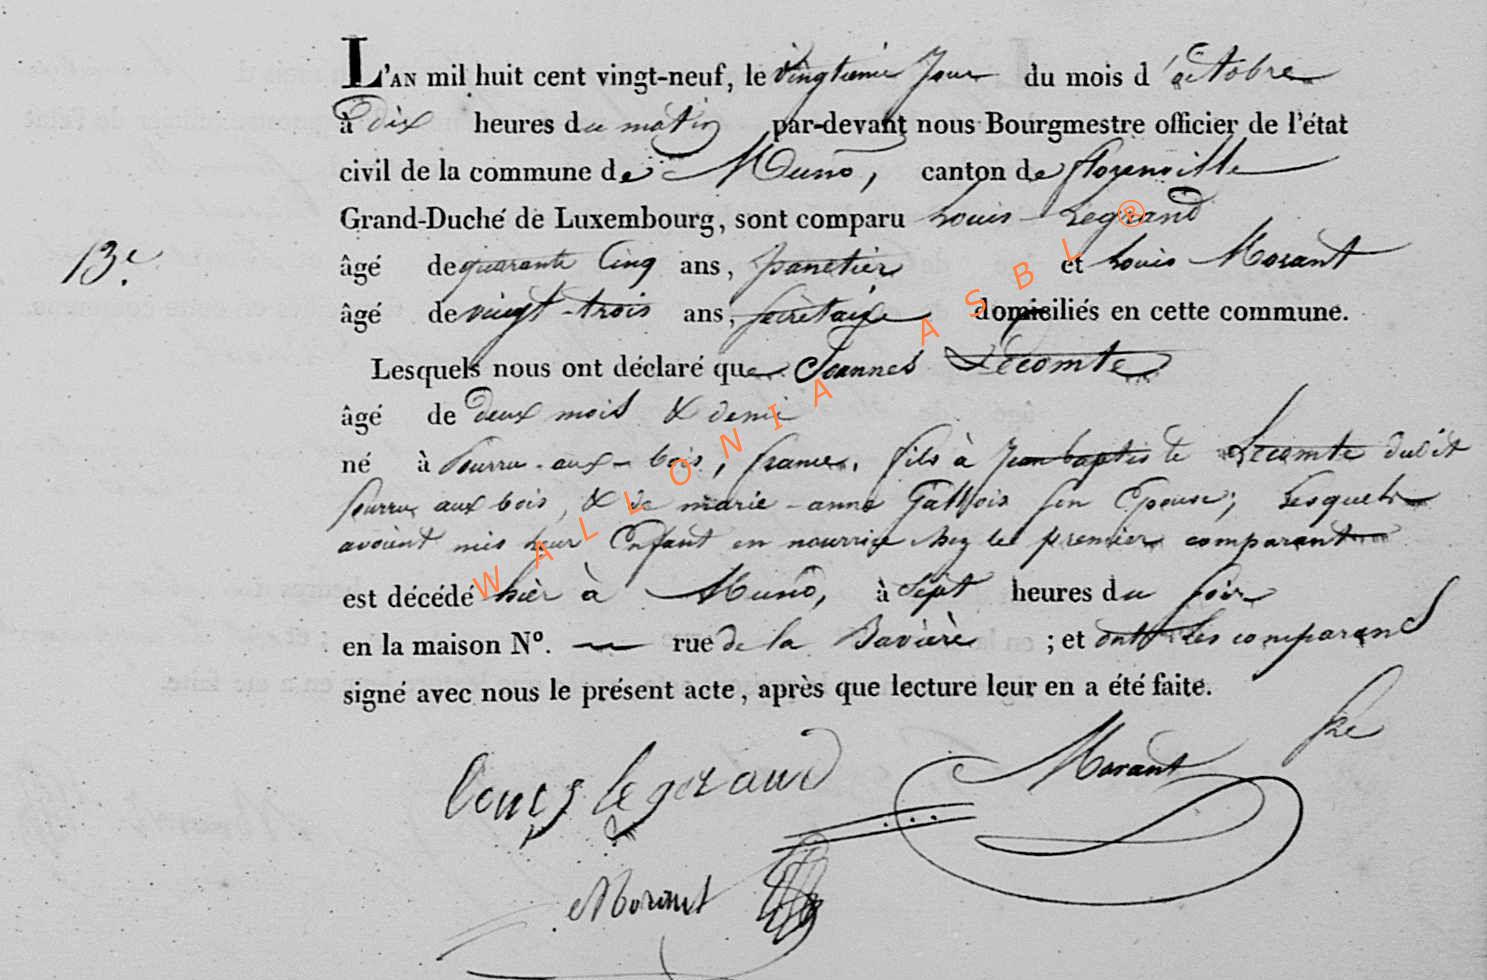 L'AN mil huit cent vingt-neuf, le vingtieme jour du mois d'octobre
à Dix heures du matin par-devant nous Bourgmestre officier de l'état
civil de la commune de Muno, canton de florenville
Grand-Duché de Luxembourg, sont comparu Louis Legrand
13e.
âgé de quarante Cinq ans, et Louis Morant
âgé de vingt-trois ans, secrétaire domiciliés en cette commune.
Lesquels nous ont déclaré que Jeannes Lecomte
âgé de deux mois & demi
né à pourru-aux-bois, france, fils à Jean baptiste Lecomte dudit
pourru aux bois, & de marie-anne son Epouse; Lesquels
avoient mis leur Enfant en nourrice chez le premier comparant
est décédé hièr à Muno, à Sept heures du soir
en la maison N°. — rue de la Bavière ; et ont les comparans
signé avec nous le présent acte, après que lecture leur en a été faite.
Louis legrand
Morant
Morant
WALLONIA ASBL ®